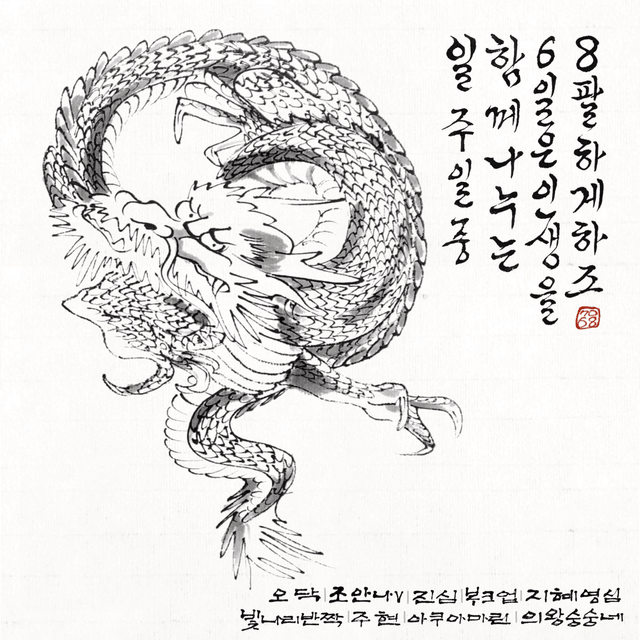 일 주일 중
함께 나누는
6일은 인생을
8팔하게하조
오 닥|조안나V|진심|지혜영심
빛나리반짝|주 현|아쿠아마린|의왕숭숭네